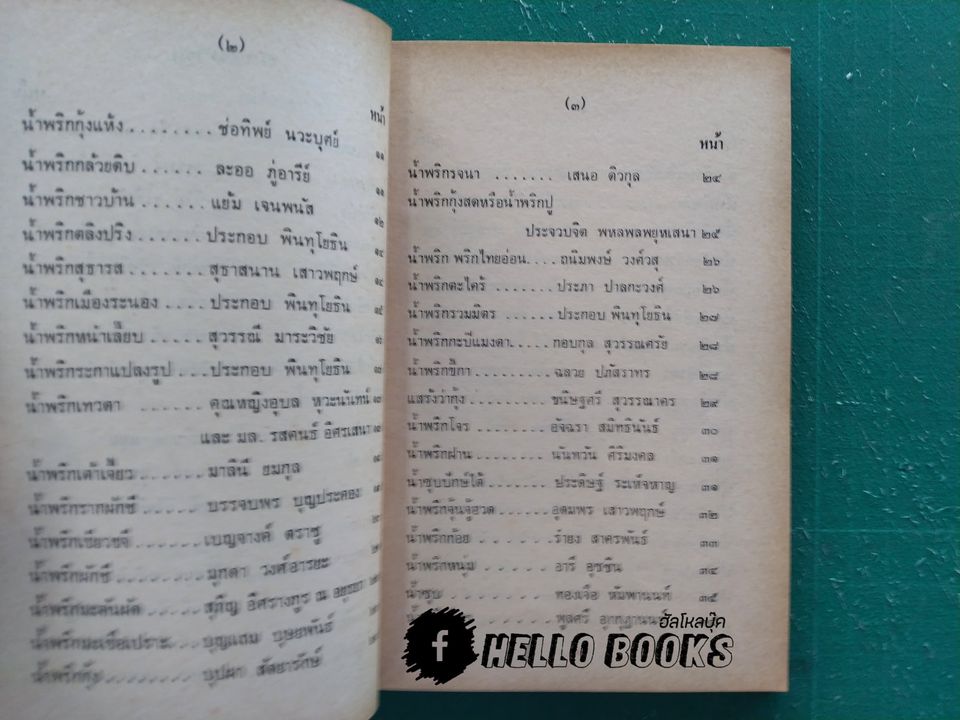 (๒)
หน้า
น้ำพริกกุ้งแห้ง ........ ช่อทิพย์ นวะบุศย์ ๑๑
น้ำพริกกล้วยดิบ ...... ละออ ภู่อารีย์ ๑๑
น้ำพริกชาวบ้าน ...... แย้ม เจนพนัส ๑๒
น้ำพริกตลิงปริง ..... ประกอบ พินทุโยธิน ๑๔
น้ำพริกสุธารส ....... สุธาสนาน เสาวพฤกษ์ ๑๔
น้ำพริกเมืองระนอง .... ประกอบ พินทุโยธิน ๑๕
น้ำพริกหนำเลี้ยบ ..... สุวรรณี มาระวิชัย
น้ำพริกระกาแปลงรูป ... ประกอบ พินทุโยธิน
น้ำพริกเทวดา ...... คุณหญิงอุบล หุวะนันทน์
และ มล. รสคนธ์ อิศรเสนา
น้ำพริกเต้าเจี้ยว ...... มาลินี ยมกุล
น้ำพริกรากผักชี ...... บรรจบพร บุญประคอง
...... เบญจางค์ ตราชู
น้ำพริกผักชี ........ มุกดา วงศ์อารยะ
น้ำพริกมะดันผัด ...... อิศรางกูร ณ อยุธยา
...... บุญแถม บุษยพันธ์
น้ำพริกกุ้ง ........ บุปผา สัตยารักษ์
(๓)
หน้า
น้ำพริกรจนา ....... เสนอ ดิวกุล ๒๔
น้ำพริกกุ้งสดหรือน้ำพริกปู
ประจวบจิต พหลพลพยุหเสนา ๒๕
น้ำพริก พริกไทยอ่อน .... ถนิมพงษ์ วงศ์วสุ ๒๖
น้ำพริกตะไคร้ ....... ประภา ปาลกะวงศ์ ๒๖
น้ำพริกรวมมิตร ...... ประกอบ พินทุโยธิน ๒๗
น้ำพริกกะปิแมงดา ..... กอบกุล สุวรรณศรัย ๒๘
น้ำพริกขี้กา ......... ฉลวย ปภัสราทร ๒๘
แสร้งว่ากุ้ง ......... ขนิษฐศรี สุวรรณาคร ๒๙
น้ำพริกโจร ........ อัจฉรา สมิทธินันธ์ ๓๐
น้ำพริกฝาน ........ นันทวัน ศิริมงคล ๓๑
น้ำชุบปักษ์ใต้ ....... ประดิษฐ์ ระเห็จหาญ ๓๑
น้ำพริกจุ้นจู๊อวด ...... อุดมพร เสาวพฤกษ์ ๓๒
น้ำพริกก้อย ....... รำยง สาครพันธ์ ๓๓
น้ำพริกหนุ่ม ...... อารี อูซซิน ๓๔
น้ำชุบ ...... ทองเจือ หัมพานนท์ ๓๕
พูลศรี
ฮัลโหลบุ๊ค
f HELLO BOOKS